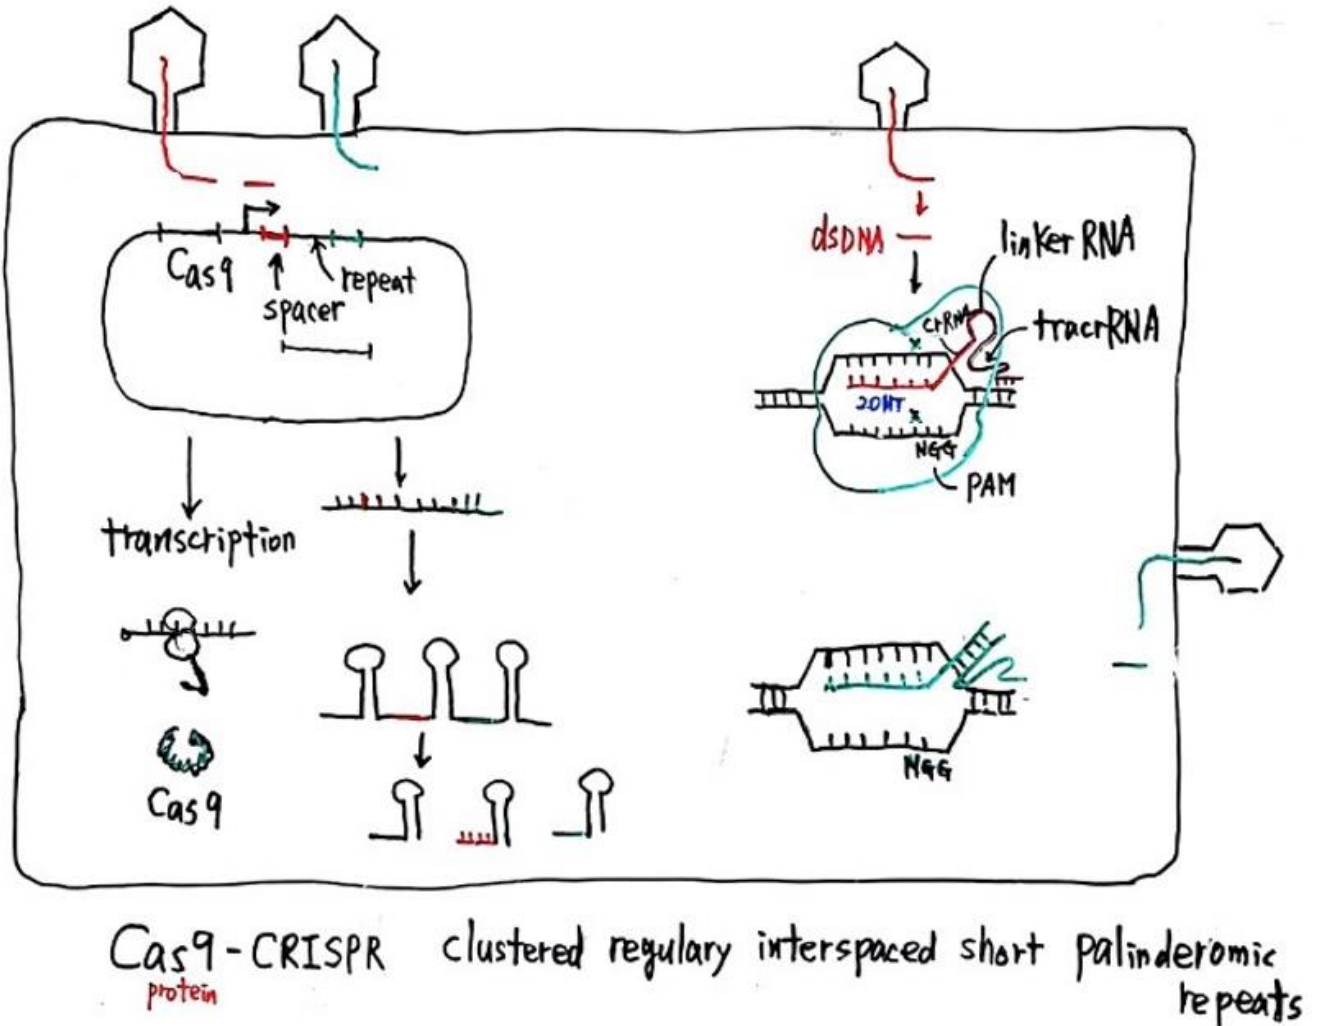 Cas9
spacer
repeat
transcription
Cas9
dsDNA
linker RNA
crRNA
tracrRNA
20NT
NGG
PAM
NGG
Cas9-CRISPR clustered regulary interspaced short palinderomic
protein
repeats